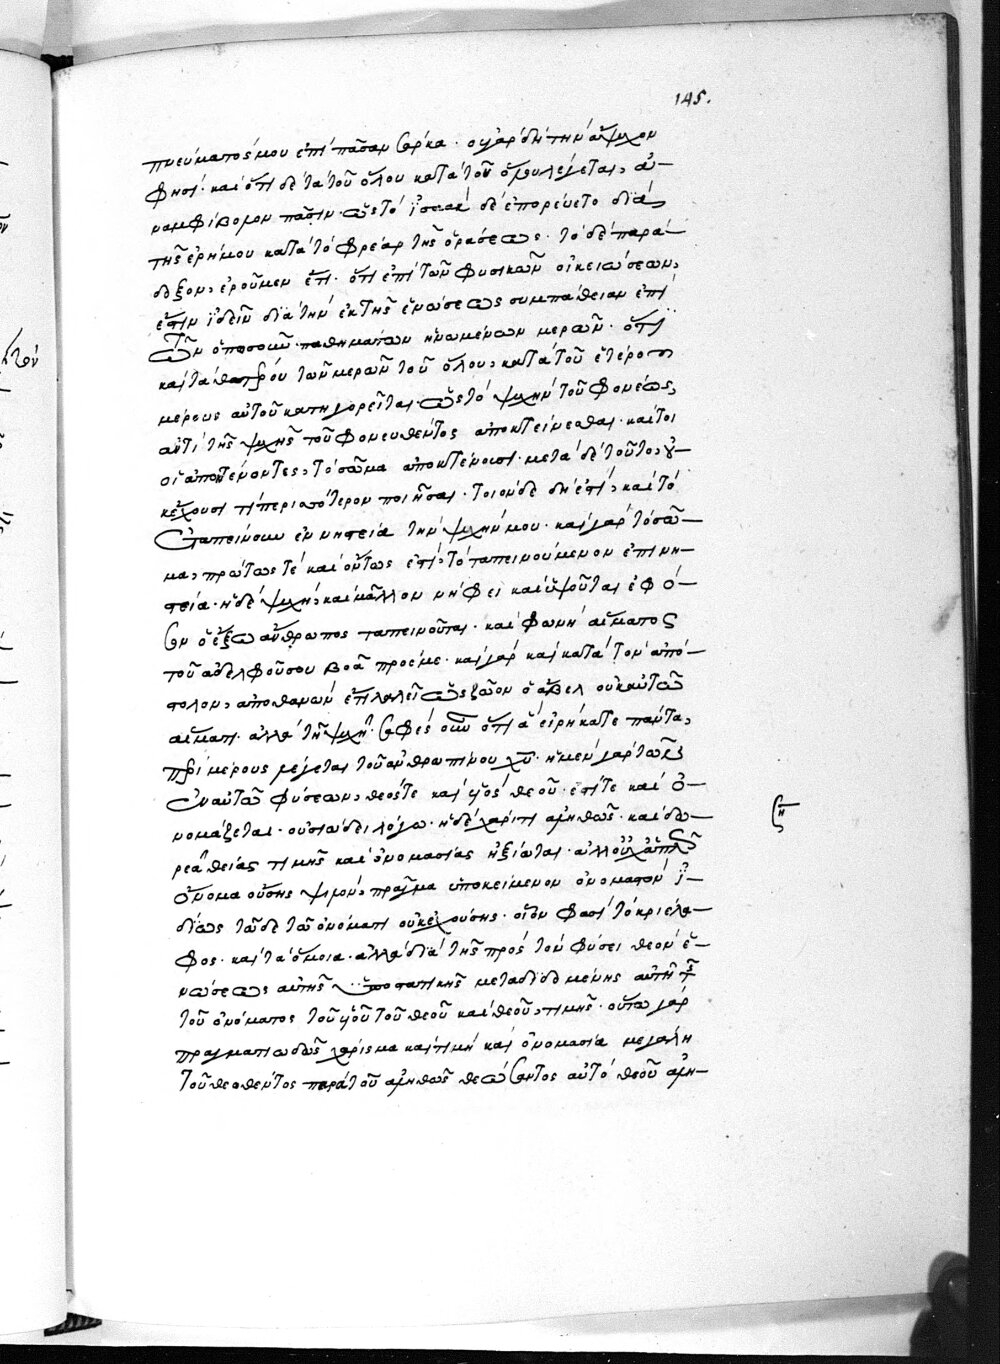 145.
πνεύματός μου ἐπὶ πᾶσαν σάρκα · οὐ γὰρ δὴ τὴν ἄψυχον
φησί · καὶ ὅτι δὲ τὰ τοῦ ὅλου κατὰ τῶν λέγεται, ἀ-
ναμφίβολον πᾶσιν · ὡς τό ἰσαὰκ δὲ ἐπορεύετο διὰ
τῆς ἐρήμου κατὰ τὸ φρέαρ τῆς ὁράσεως · τὸ δὲ παρά-
δοξον, ἐροῦμεν ἔτι · ὅτι ἐπὶ τῶν φυσικῶν οἰκειώσεων,
ἔστιν ἰδεῖν διὰ τὴν ἐκ τῆς ἑνώσεως συμπάθειαν ἐπὶ
τῶν ὁποσοῦν παθημάτων ἡνωμένων μερῶν · ὅτι
καὶ τὰ θατέρου τῶν μερῶν τοῦ ὅλου, κατὰ τοῦ ἑτέρου
μέρους αὐτοῦ κατηγορεῖται · ὡς τό ψυχὴν τοῦ φονέως,
ἀντὶ τῆς ψυχῆς τοῦ φονευθέντος ἀποκτείνεσθαι · καίτοι
οἱ ἀποκτένοντες, τὸ σῶμα ἀποκτένουσι · μετὰ δὲ τοῦτο, οὐ-
κ ἔχουσι τί περισσότερον ποιῆσαι · τοιόνδε δή ἐστί, καὶ τό
ἐταπείνουν ἐν νηστεία τὴν ψυχήν μου · καὶ γὰρ τὸ σῶ-
μα, πρώτως τὲ καὶ οὕτως ἐστὶ τὸ ταπεινούμενον ἐπὶ νη-
στεία · ἡ δὲ ψυχὴ, καὶ μᾶλλον νήφει καὶ ὑψοῦται ἐφ ὅ-
σον ὁ ἔξω ἄνθρωπος ταπεινοῦται · καὶ φωνὴ αἵματος
τοῦ ἀδελφοῦ σου βοᾶ πρός με · καὶ γὰρ καὶ κατὰ τὸν ἀπό-
στολον, ἀποθανὼν ἔτι λαλεῖ ὡς ζῶον ὁ ἄβελ οὐκ αὐτῶ
αἵματι · ἀλλὰ τῆ ψυχῆ · σαφὲς οὖν ὅτι ἃ εἰρήκατε πάντα,
μέρους λέγεται τοῦ ἀνθρωπίνου χῦ · ἡ μὲν γὰρ τῶν
ἐν αὐτῶ φύσεων, θεός τε καὶ υἱὸς θεοῦ · ἐστί τε καὶ ὀ-
νομάζεται · οὐσιώδει λόγω · ἡ δὲ χάριτι ἀληθῶς · καὶ δω-
ρεᾶ θείας τιμῆς καὶ ὀνομασίας ἠξίωται · ἀλλ οὐχ ἁπλῶς
ὄνομα οὔσης ψιλὸν, πρᾶγμα ὑποκείμενον ὀνομαστὸν ἰ-
δίως τῶδε τῶ ὀνόματι οὐκ ἐχούσης · οἷον φασὶ τὸ κριέλα-
φος · καὶ τὰ ὅμοια · ἀλλὰ διὰ τῆς πρὸς τὸν φύσει θεὸν ἑ-
νώσεως αὐτῆς ὑποστατικῆς μεταδιδομένης αὐτῆ τῆς
τοῦ ὀνόματος τοῦ υἱοῦ τοῦ θεοῦ καὶ θεοῦ, τιμῆς · οὕτω γὰρ
πραγματιωδῶς χάρισμα καὶ τιμὴ καὶ ὀνομασία μεγάλη
τοῦ θεοθέντος παρὰ τοῦ ἀληθῶς θεώσαντος αὐτὸ θεοῦ ἀλη-